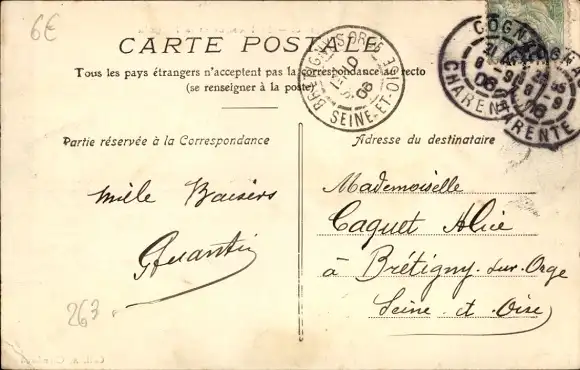 6€
CARTE POSTALE
Tous les pays étrangers n'acceptent pas la correspondance au recto
(se renseigner à la poste)
BRETIGNY-S-ORGE
06
SEINE-ET-OISE
COGNAC
06
CHARENTE
COGNAC
06
CHARENTE
Partie réservée à la Correspondance
Adresse du destinataire
Mille Baisers
Mademoiselle
Caquet Alice
à Brétigny-sur-Orge
Seine et Oise
263